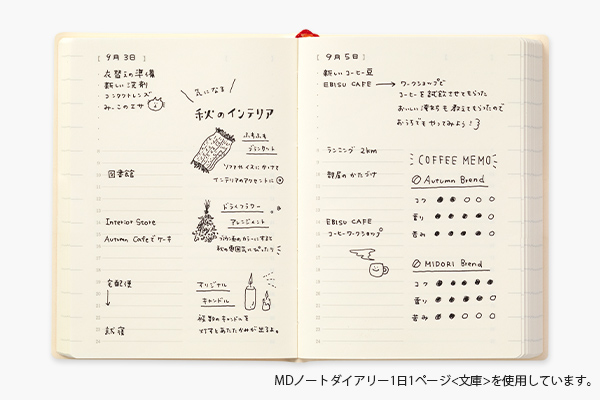 [ 9月3日 ]
・衣替えの準備
・新しい洗剤
・コンタクトレンズ
・みーこのエサ
図書館
Interior Store
Autumn Cafeでケーキ
宅配便
新宿
気になる
秋のインテリア
ふわふわ
ブランケット
ソファやイスにかけて
インテリアのアクセントに
ドライフラワー
アレンジメント
ブラウン系のカラーにすると
秋の雰囲気にぴったり
オリジナル
キャンドル
複数のキャンドルを
灯すとあたたかみが出るよ。
[ 9月5日 ]
・新しいコーヒー豆
EBISU CAFE → ワークショップで
コーヒーを試飲させてもらった
おいしい淹れ方も教えてもらったので
おうちでもやってみよう!
ランニング 2km
部屋のかたづけ
EBISU CAFE
コーヒーワークショップ
COFFEE MEMO
Autumn Brend
コク
香り
苦み
MIDORI Brend
コク
香り
苦み
MDノートダイアリー1日1ページ<文庫>を使用しています。